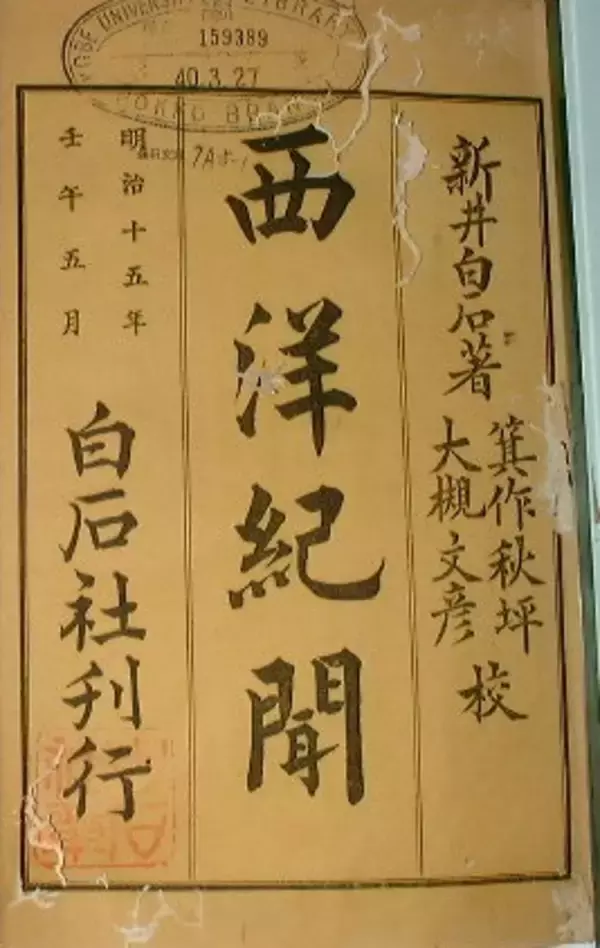 新井白石著
箕作秋坪
大槻文彦 校
西洋紀聞
明治十五年
壬午五月
白石社刊行
KOBE UNIVERSITY LIBRARY
159389
40.3.27